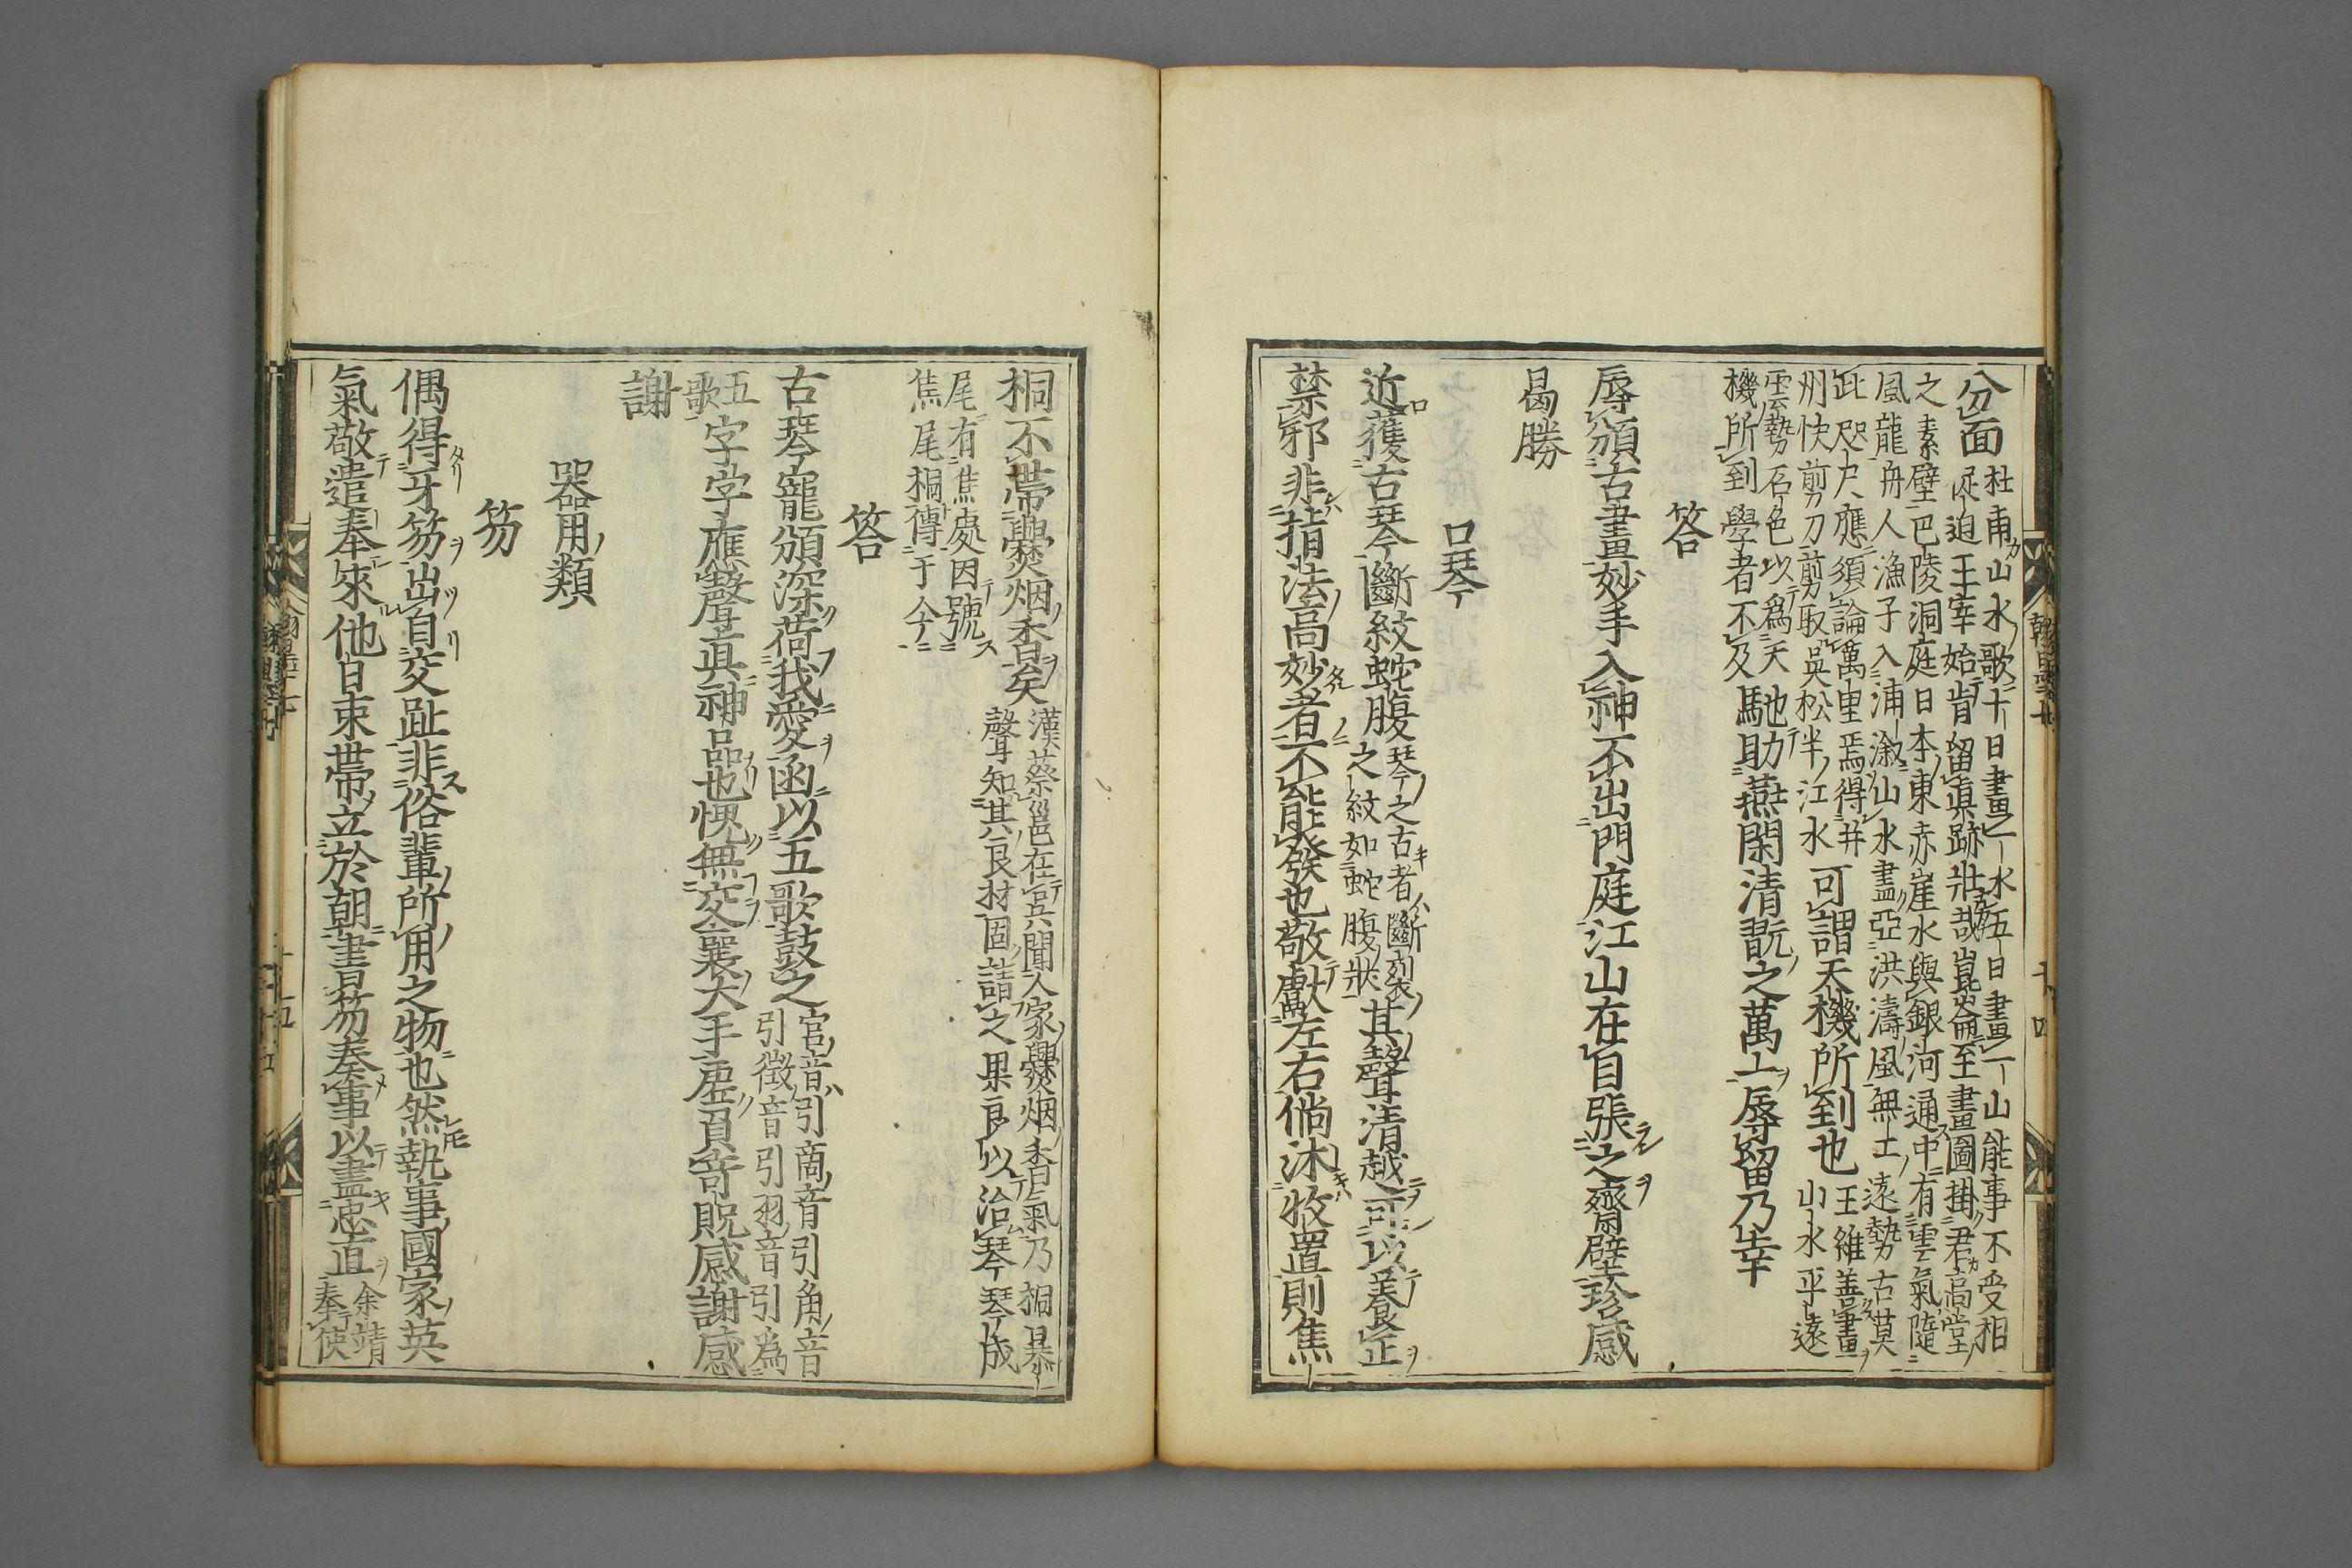 分面 杜甫山水歌十日畫一水五日畫一山能事不受相
促迫王宰始肯留眞跡壯哉崑崙至畫圖掛君高堂
之素壁巴陵洞庭日本東赤崖水與銀河通中有雲氣隨
風龍舟人漁子入浦溆山水盡亞洪濤風無工遠勢古莫
此咫尺應須論萬里焉得并
州快剪刀剪取吳松半江水 可謂天機所到也 王維善畫
山水平遠
雲勢石色以爲天
機所到學者不及 馳助燕閑清翫之萬一辱留乃幸
答
辱頒古畫妙手入神不出門庭江山在目張之齋壁珍感
曷勝
口琴
近獲古琴斷紋蛇腹 琴之古者斷裂
之紋如蛇腹狀 其聲清越可以養正
禁邪非指法高妙者不能發也敬獻左右倘沐收置則焦
桐不帶爨烟香矣 漢蔡邕在宾聞人家爨烟香氣乃桐暴
聲知其良材固請之果良以治琴琴成
尾有焦處因號
焦尾桐傳于今
答
古琴寵頒深荷我愛函以五歌鼓之 宮音引商音引角音
引徵音引羽音引爲
五
歌 字字應聲真神品也愧無交襄大手虛負奇貺感謝感
謝
器用類
笏
偶得牙笏出自交趾非俗輩所用之物也然執事國家英
氣敬遣奉來他日束帶立於朝書笏奏事以盡忠直 余靖
奉使